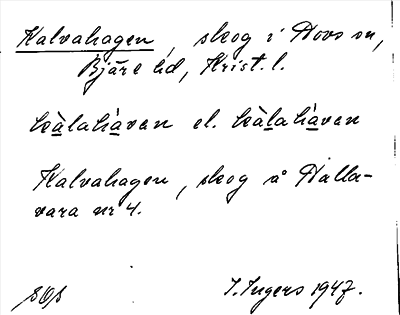 Kalvahagen, skog i Hovs sn,
Bjäre hd, Krist. l.
kàlahàven el. kàlahàven
Kalvahagen, skog å Halla-
vara nr 4.
I. Ingers 1947.